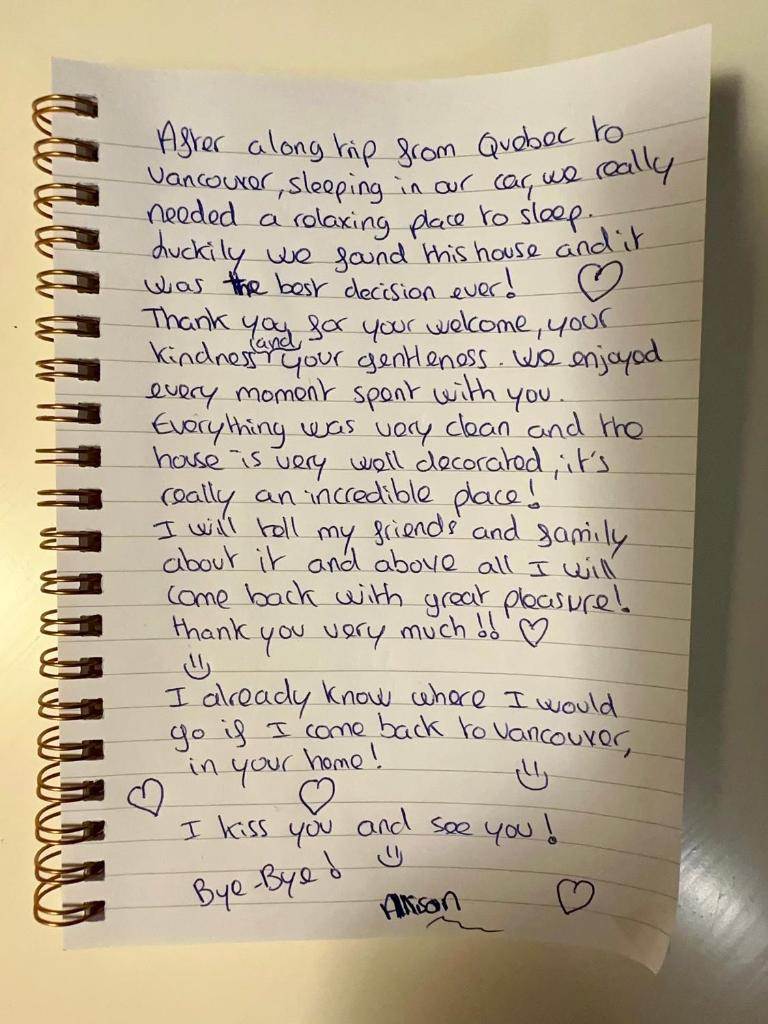 After along trip from Quebec to
Vancouver, sleeping in our car, we really
needed a relaxing place to sleep.
Luckily we found this house and it
was the best decision ever! ♡
Thank you, for your welcome, your
kindness and your gentleness. We enjoyed
every moment spent with you.
Everything was very clean and the
house is very well decorated, it's
really an incredible place!
I will tell my friends and family
about it and above all I will
come back with great pleasure!
thank you very much!! ♡
☺
I already know where I would
go if I come back to Vancouver,
in your home! ☺
♡ ♡
I kiss you and see you!
Bye-Bye! ☺
Alison ♡